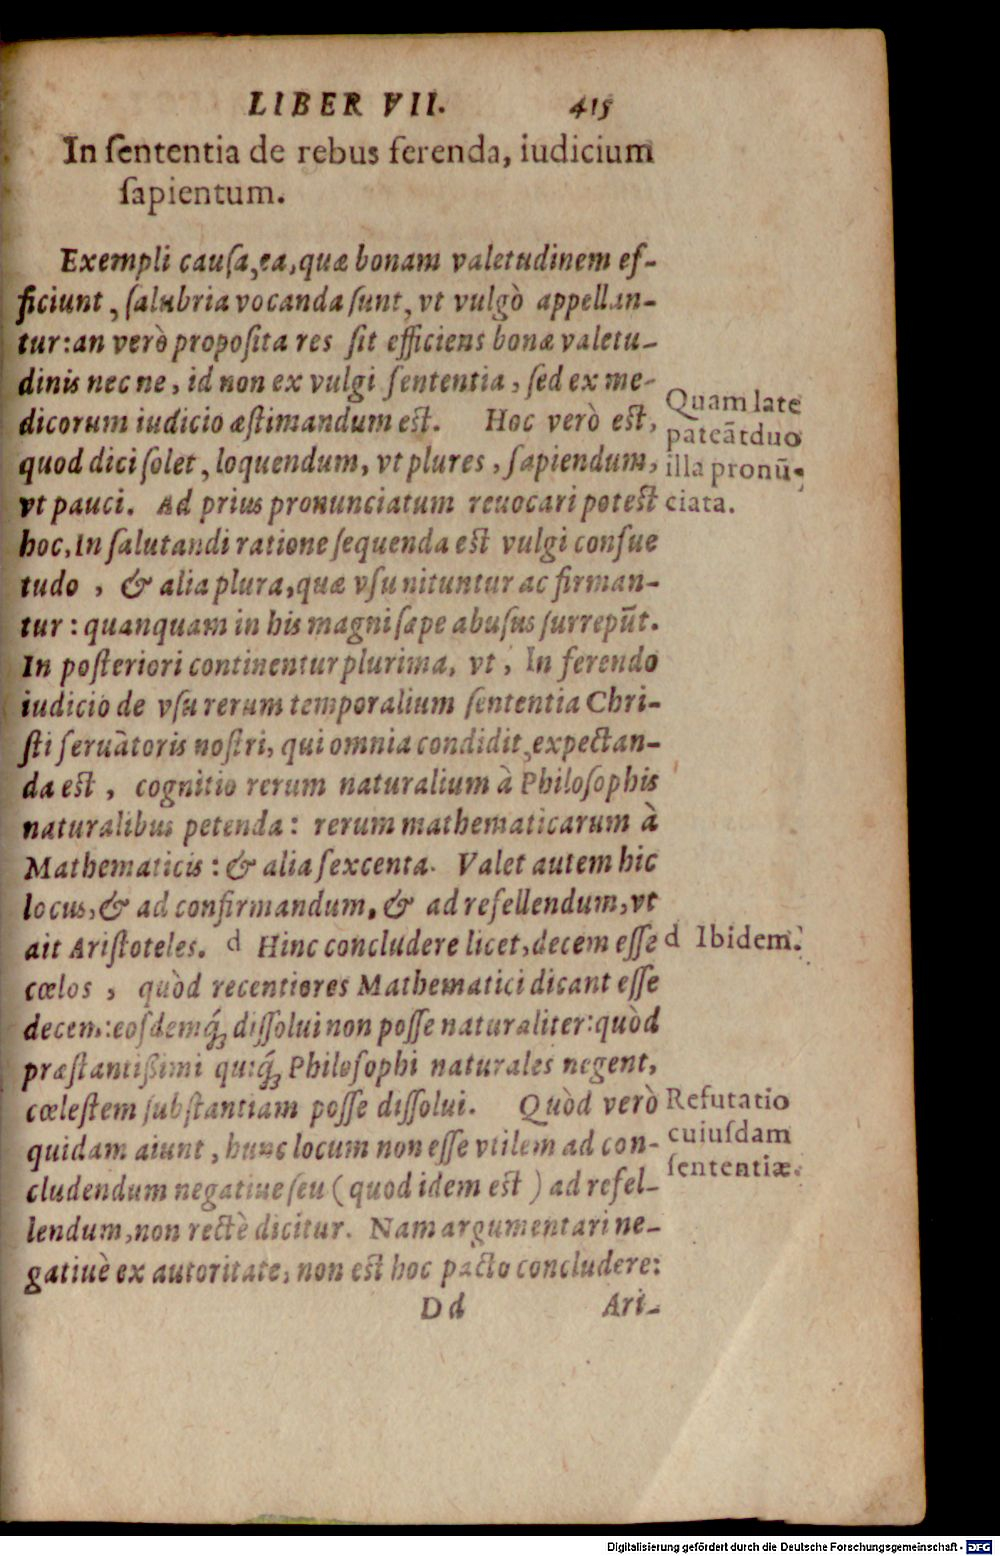 LIBER VII. 415
In ſententia de rebus ferenda, iudicium
ſapientum.
Exempli cauſa, ea, quæ bonam valetudinem ef-
ficiunt, ſalubria vocanda ſunt, vt vulgò appellan-
tur: an verò propoſita res ſit efficiens bonæ valetu-
dinis nec ne, id non ex vulgi ſententia, ſed ex me-
dicorum iudicio æſtimandum eſt. Hoc verò eſt,
quod dici ſolet, loquendum, vt plures, ſapiendum,
vt pauci. Ad prius pronunciatum reuocari poteſt
hoc, In ſalutandi ratione ſequenda eſt vulgi conſue
tudo, & alia plura, quæ vſu nituntur ac firman-
tur: quanquam in his magni ſæpe abuſus ſurrepūt.
In poſteriori continentur plurima, vt, In ferendo
iudicio de vſu rerum temporalium ſententia Chri-
ſti ſeruātoris noſtri, qui omnia condidit, expectan-
da eſt, cognitio rerum naturalium à Philoſophis
naturalibus petenda: rerum mathematicarum à
Mathematicis: & alia ſexcenta. Valet autem hic
locus, & ad confirmandum, & ad refellendum, vt
ait Ariſtoteles. d Hinc concludere licet, decem eſſe
cœlos, quòd recentiores Mathematici dicant eſſe
decem: eoſdemq́; diſſolui non poſſe naturaliter: quòd
præſtantißimi quiq́; Philoſophi naturales negent,
cœleſtem ſubſtantiam poſſe diſſolui. Quòd verò
quidam aiunt, hunc locum non eſſe vtilem ad con-
cludendum negatiue ſeu (quod idem eſt) ad refel-
lendum, non rectè dicitur. Nam argumentari ne-
gatiuè ex autoritate, non eſt hoc pacto concludere:
Dd Ari-
Quam late
pateāt duo
illa pronū-
ciata.
d Ibidem.
Refutatio
cuiuſdam
ſententiæ.
Digitalisierung gefördert durch die Deutsche Forschungsgemeinschaft - DFG